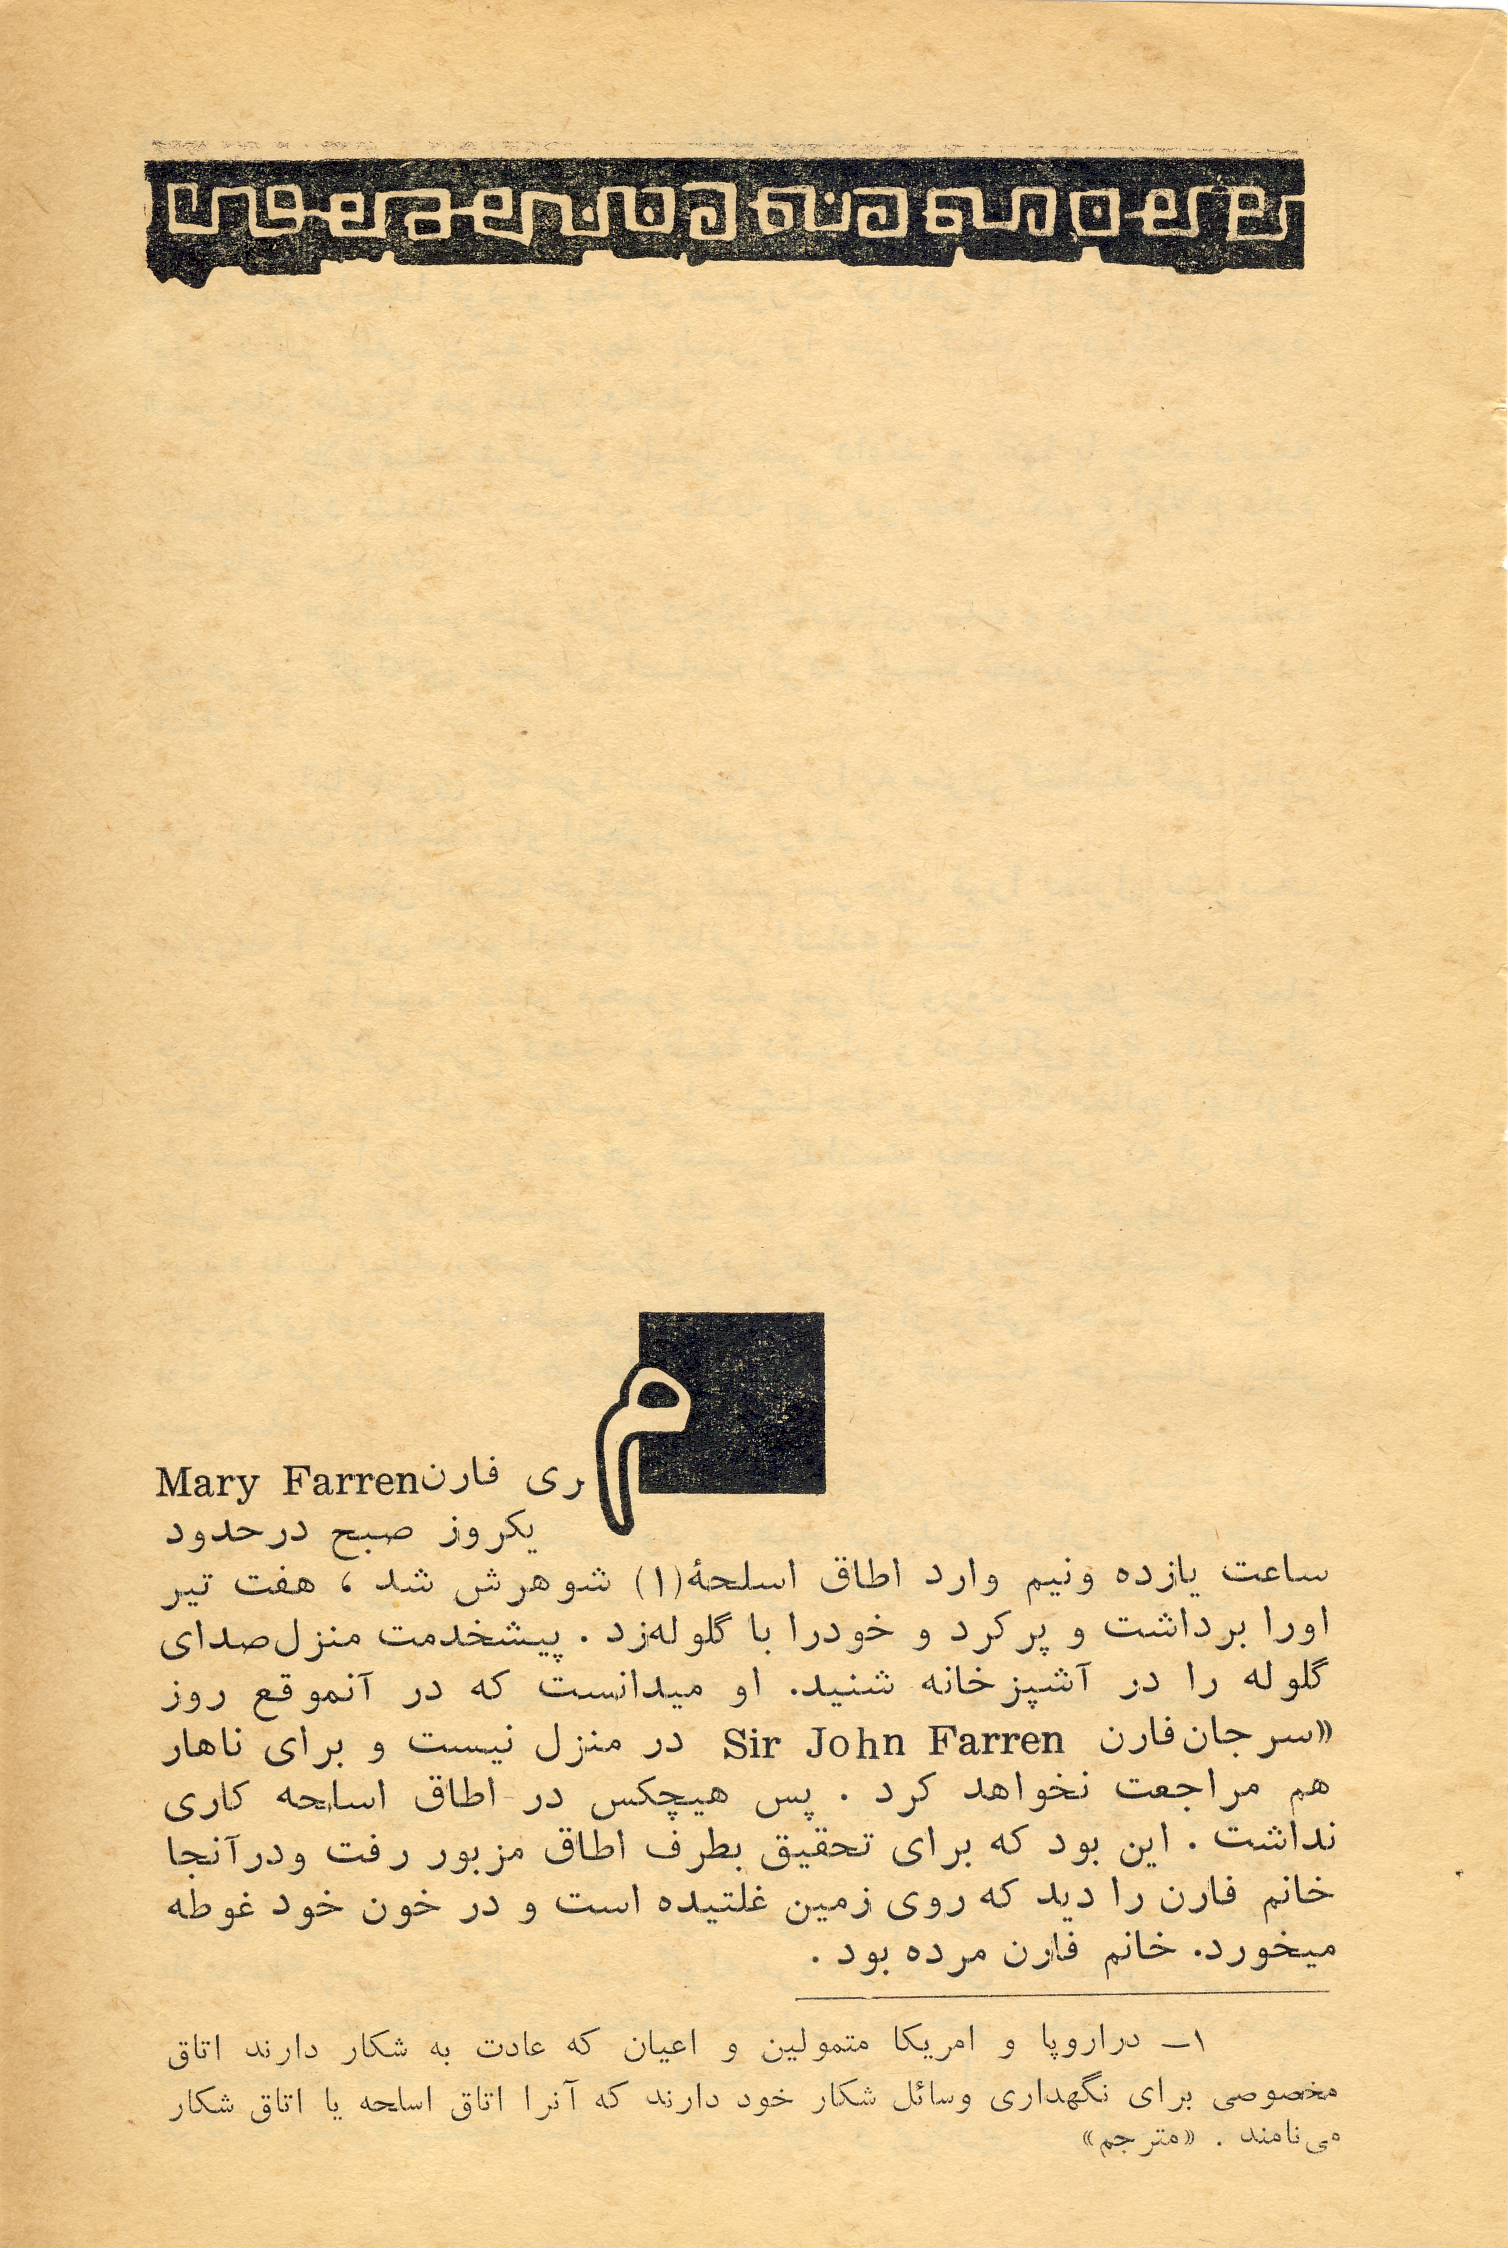 مری فارن Mary Farren
یکروز صبح درحدود
ساعت یازده ونیم وارد اطاق اسلحهٔ(۱) شوهرش شد ، هفت تیر
اورا برداشت و پر کرد و خودرا با گلوله‌زد . پیشخدمت منزل‌صدای
گلوله را در آشپزخانه شنید. او میدانست که در آنموقع روز
«سرجان‌فارن Sir John Farren در منزل نیست و برای ناهار
هم مراجعت نخواهد کرد . پس هیچکس در اطاق اسلحه کاری
نداشت . این بود که برای تحقیق بطرف اطاق مزبور رفت ودرآنجا
خانم فارن را دید که روی زمین غلتیده است و در خون خود غوطه
میخورد. خانم فارن مرده بود .
۱ــ دراروپا و امریکا متمولین و اعیان که عادت به شکار دارند اتاق
مخصوصی برای نگهداری وسائل شکار خود دارند که آنرا اتاق اسلحه یا اتاق شکار
می‌نامند . «مترجم»